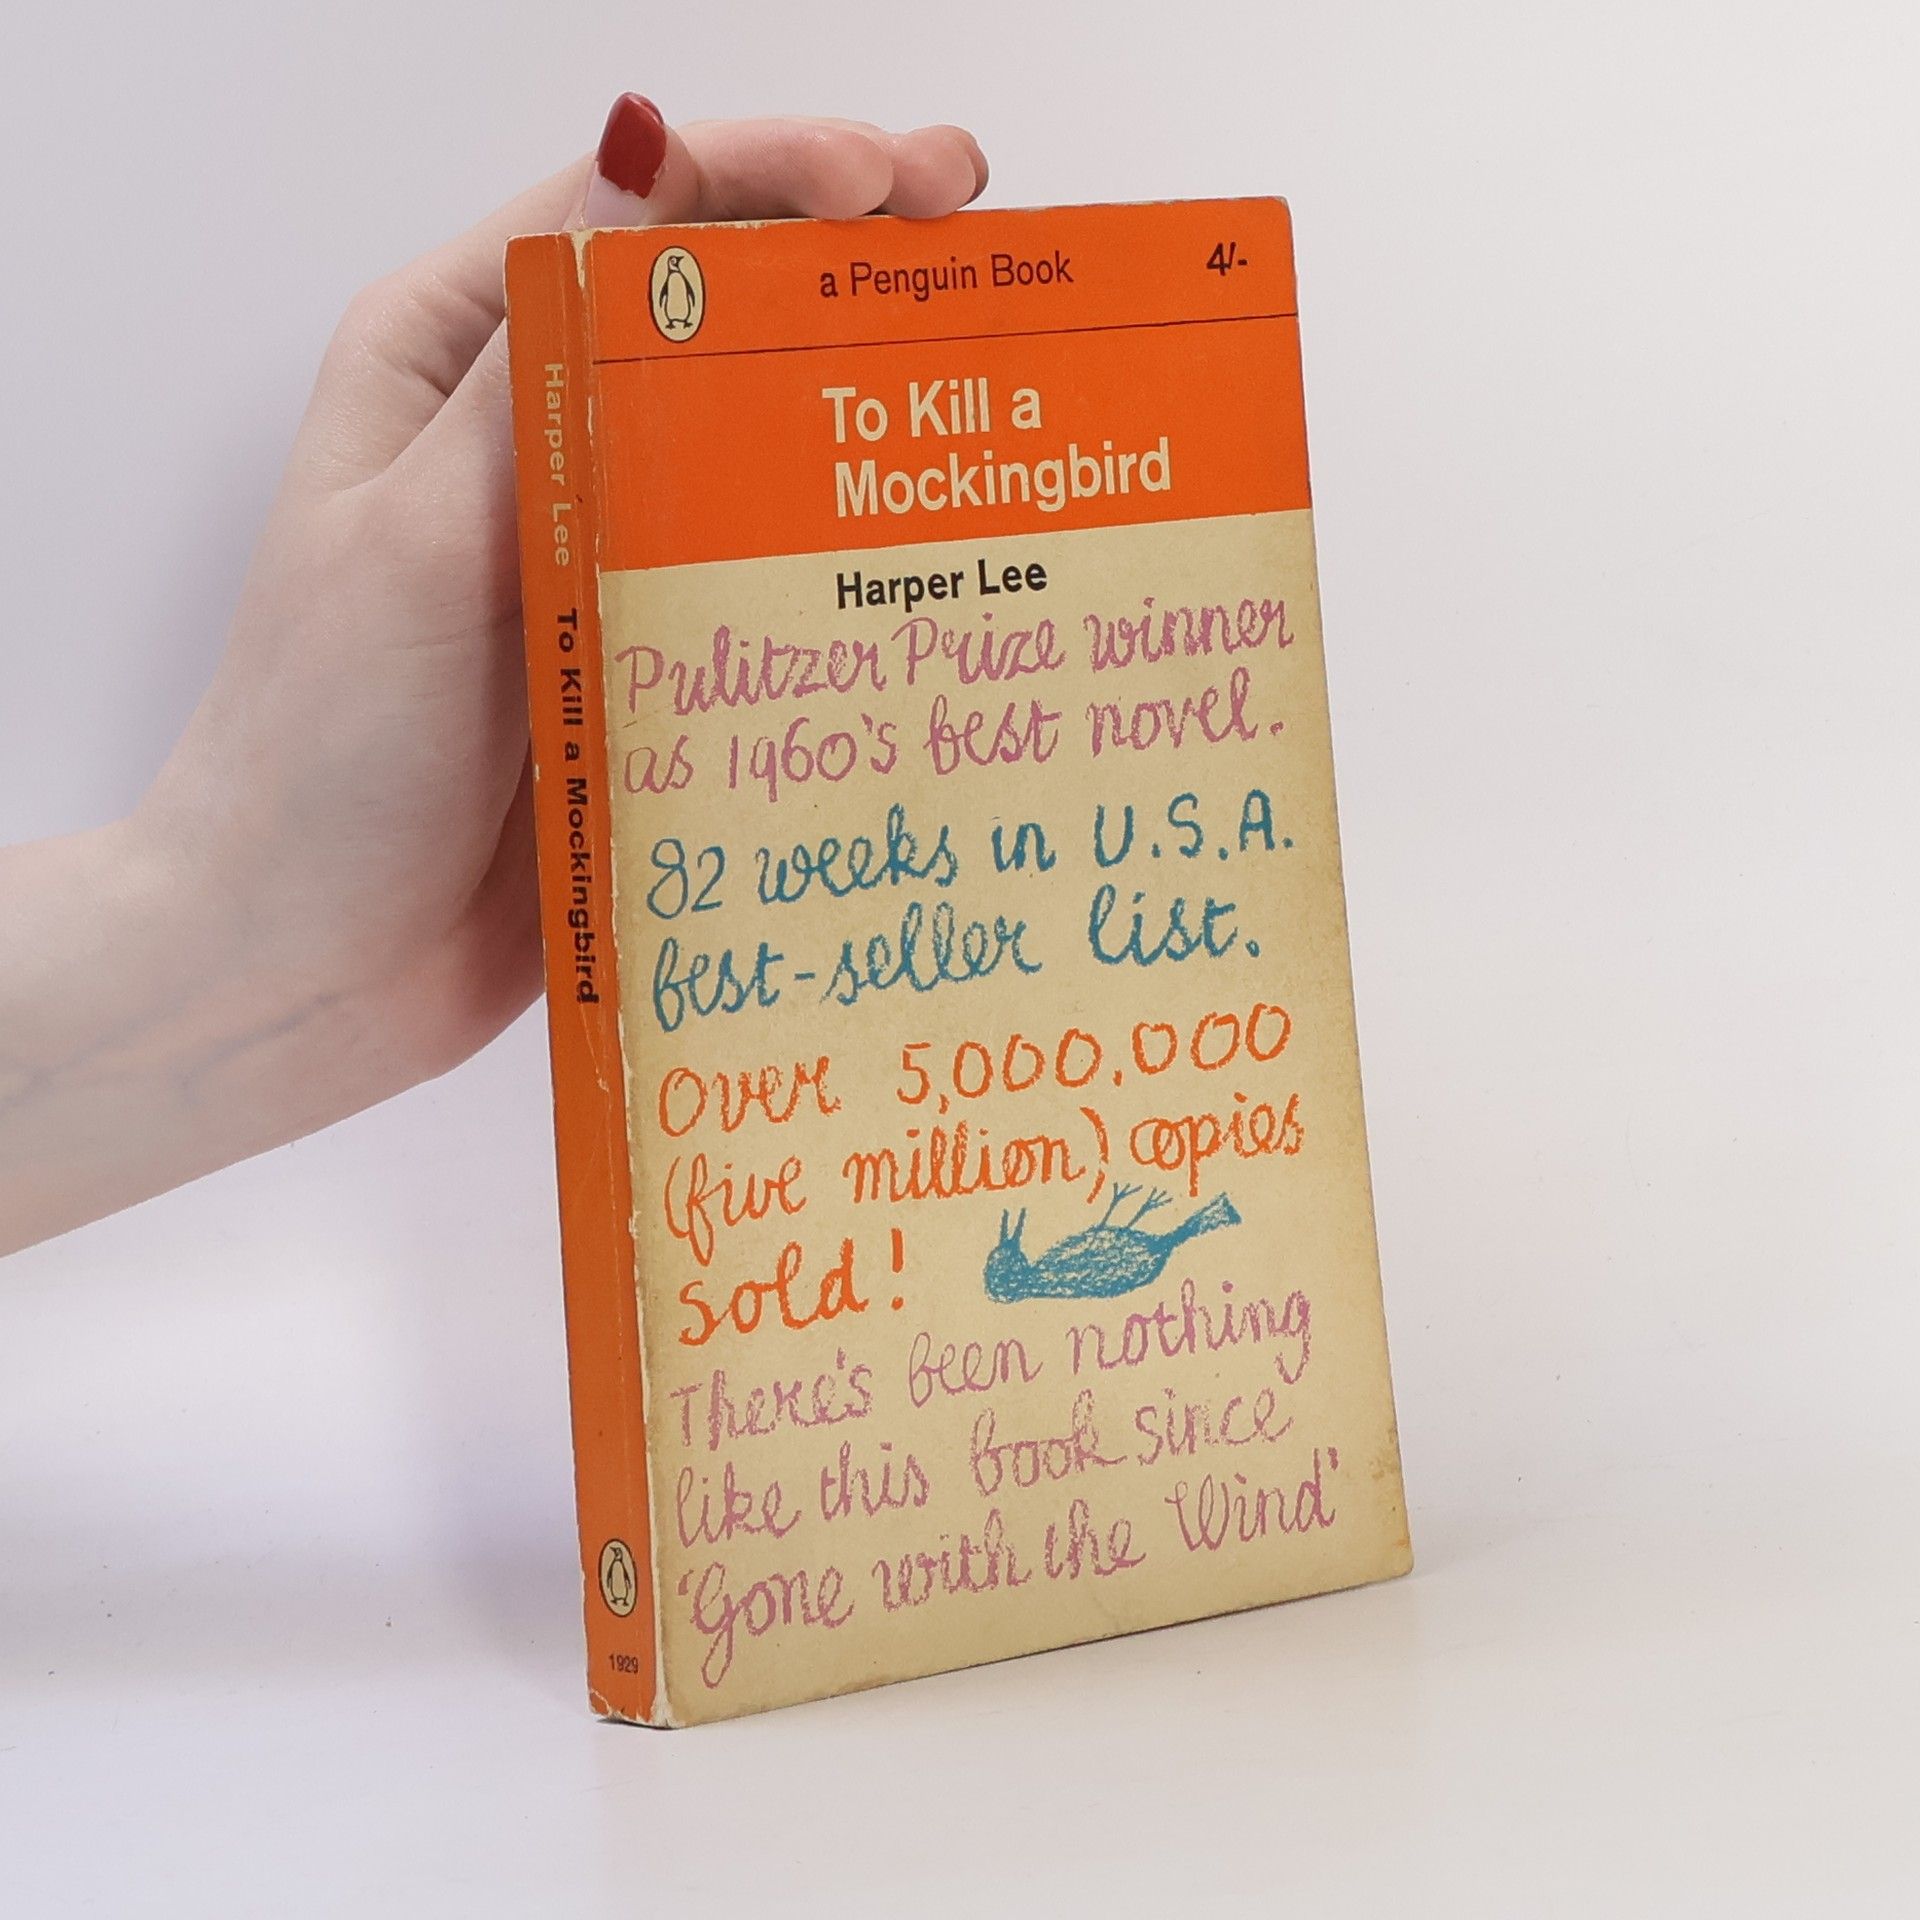 a Penguin Book 4/-
To Kill a
Mockingbird
Harper Lee
Pulitzer Prize winner
as 1960's best novel.
82 weeks in U.S.A.
best-seller list.
Over 5,000,000
(five million) copies
sold!
There's been nothing
like this book since
'Gone with the Wind'
Harper Lee To Kill a Mockingbird
1929